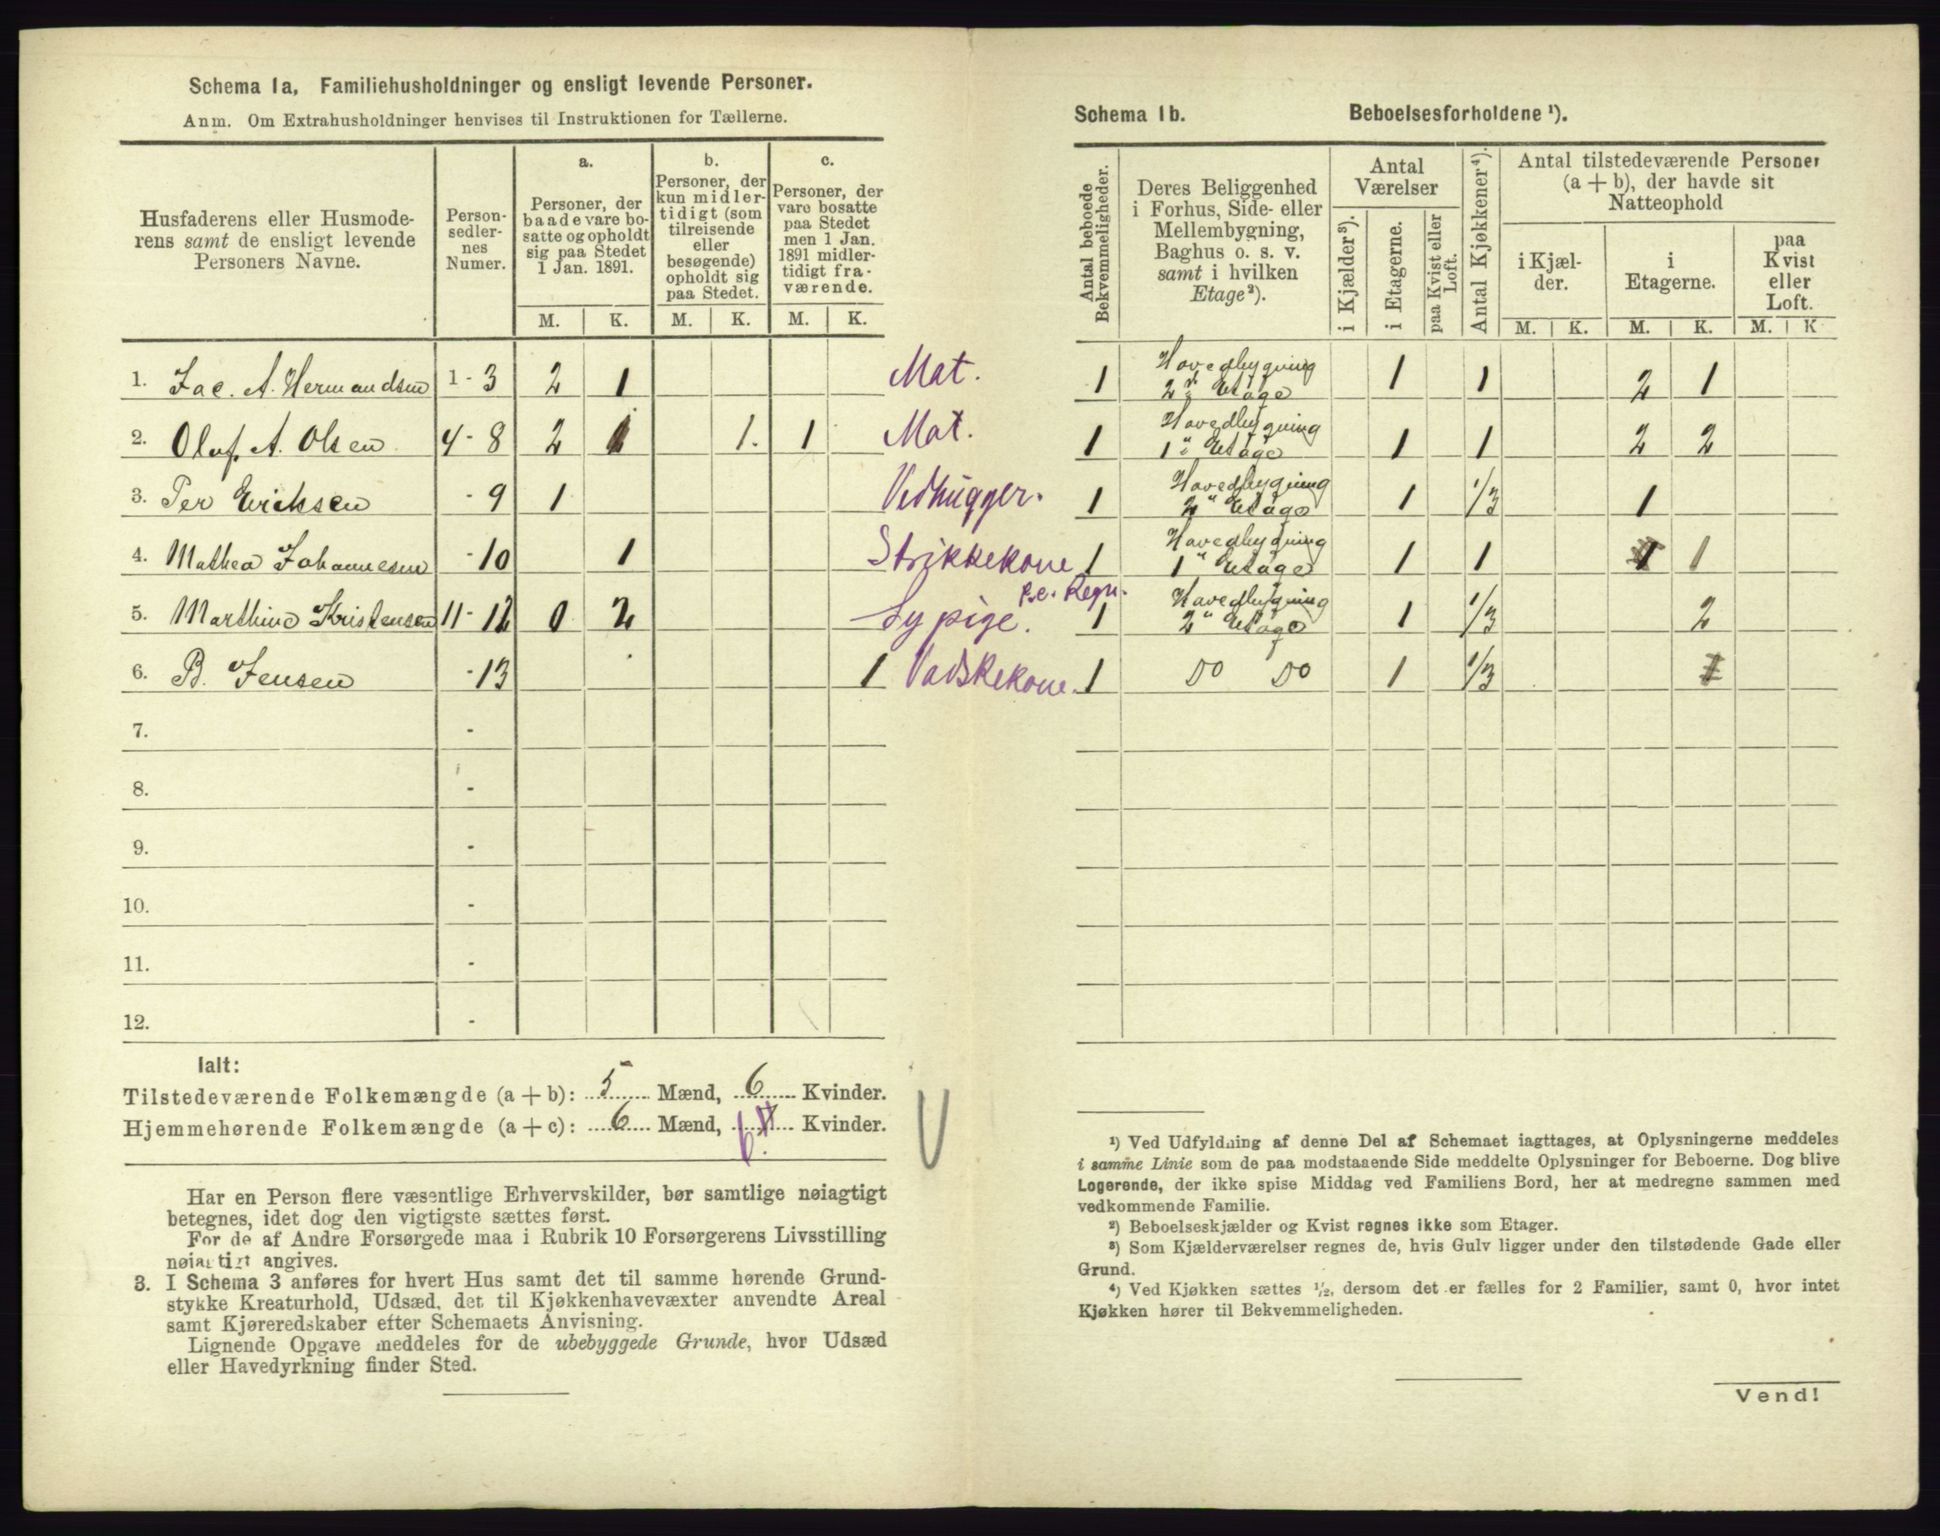 Schema 1a, Familiehusholdninger og ensligt levende Personer.
Anm. Om Extrahusholdninger henvises til Instruktionen for Tællerne.
Husfaderens eller Husmode-
rens samt de ensligt levende
Personers Navne.
Person-
sedler-
nes
Numer.
a.
Personer, der
baade vare bo-
satte og opholdt
sig paa Stedet
1 Jan. 1891.
b.
Personer, der
kun midler-
tidigt (som
tilreisende
eller
besøgende)
opholdt sig
paa Stedet.
c.
Personer, der
vare bosatte
paa Stedet
men 1 Jan.
1891 midler-
tidigt fra-
værende.
M. K. M. K. M. K.
1. Jac. A. Hermandsen 1 - 3 2 1 Mat.
2. Oluf. A. Olsen 4 - 8 2 1 1. 1 Mat.
3. Per Eriksen - 9 1 Vedhugger.
4. Mathea Johannesen - 10 1 Strikkekone
5. Marthine Kristensen 11 - 12 0 2 Sypige.
6. B. Jensen - 13 1 Vadskekone.
7. -
8. -
9. -
10. -
11. -
12. -
Ialt:
Tilstedeværende Folkemængde (a + b): 5 Mænd, 6 Kvinder.
Hjemmehørende Folkemængde (a + c): 6 Mænd, 6. Kvinder.
Har en Person flere væsentlige Erhvervskilder, bør samtlige nøiagtigt
betegnes, idet dog den vigtigste sættes først.
For de af Andre Forsørgede maa i Rubrik 10 Forsørgerens Livsstilling
nøiagtigt angives.
3. I Schema 3 anføres for hvert Hus samt det til samme hørende Grund-
stykke Kreaturhold, Udsæd, det til Kjøkkenhavevæxter anvendte Areal
samt Kjøreredskaber efter Schemaets Anvisning.
Lignende Opgave meddeles for de ubebyggede Grunde, hvor Udsæd
eller Havedyrkning finder Sted.
Schema 1b. Beboelsesforholdene ¹).
Antal beboede
Bekvemmeligheder.
Deres Beliggenhed
i Forhus, Side- eller
Mellembygning,
Baghus o. s. v.
samt i hvilken
Etage²).
Antal
Værelser
i Kjælder³).
i Etagerne.
paa Kvist eller
Loft.
Antal Kjøkkener⁴).
Antal tilstedeværende Personer
(a + b), der havde sit
Natteophold
i Kjæl-
der.
i
Etagerne.
paa
Kvist
eller
Loft.
M. K. M. K. M. K
1 Hovedbygning 2den Etage 1 1 2 1
1 Hovedbygning 1" Etage 1 1 2 2
1 Hovedbygning 2" Etage 1 1/3 1
1 Hovedbygning 1" Etage 1 1 1 1
1 Hovedbygning 2" Etage 1 1/3 2
1 Do Do 1 1/3
¹) Ved Udfyldning af denne Del af Schemaet iagttages, at Oplysningerne meddeles
i samme Linie som de paa modstaaende Side meddelte Oplysninger for Beboerne. Dog blive
Logerende, der ikke spise Middag ved Familiens Bord, her at medregne sammen med
vedkommende Familie.
²) Beboelseskjælder og Kvist regnes ikke som Etager.
³) Som Kjælderværelser regnes de, hvis Gulv ligger under den tilstødende Gade eller
Grund.
⁴) Ved Kjøkken sættes ½, dersom det er fælles for 2 Familier, samt 0, hvor intet
Kjøkken hører til Bekvemmeligheden.
Vend!